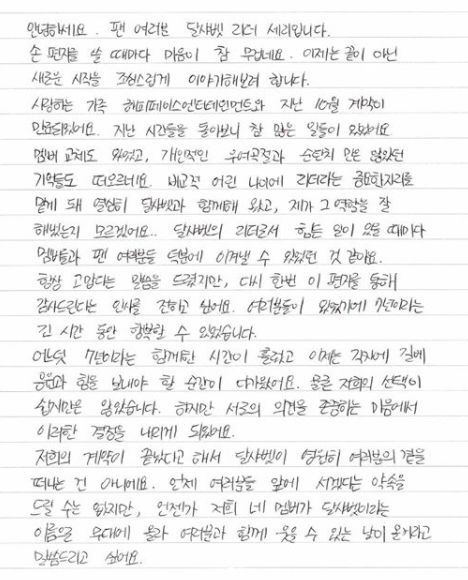 안녕하세요. 팬 여러분 달샤벳 리더 세리입니다.
손 편지를 쓸 때마다 마음이 참 무겁네요. 이제는 끝이 아닌
새로운 시작을 조심스럽게 이야기해보려 합니다.
사랑하는 가족 해피페이스엔터테인먼트와 지난 10월 계약이
만료되었어요. 지난 시간들을 돌아보니 참 많은 일들이 있었어요
멤버 교체도 있었고, 개인적인 우여곡절과 순탄치 만은 않았던
기억들도 떠오르네요. 비교적 어린 나이에 리더라는 중요한자리를
맡게 돼 열심히 달샤벳과 함께해 왔고, 제가 그 역할을 잘
해왔는지 모르겠어요.. 달샤벳의 리더로서 힘든 일이 있을 때마다
멤버들과 팬 여러분들 덕분에 이겨낼 수 있었던 것 같아요.
항상 고맙다는 말씀을 드렸지만, 다시 한번 이 편지를 통해
감사드린다는 인사를 전하고 싶어요. 여러분들이 있었기에 7년이라는
긴 시간 동안 행복할 수 있었습니다.
어느덧 7년이라는 함께한 시간이 흘렀고 이제는 각자에 길에
응원과 힘을 보내야 할 순간이 다가왔어요. 물론 저희의 선택이
쉽지만은 않았습니다. 하지만 서로의 의견을 존중하는 마음에서
이러한 결정을 내리게 되었어요.
저희의 계약이 끝났다고 해서 달샤벳이 영원히 여러분의 곁을
떠나는 건 아니에요. 언제 여러분들 앞에 서겠다는 약속을
드릴 수는 없지만, 언젠가 저희 네 멤버가 달샤벳이라는
이름으로 무대에 올라 여러분과 함께 웃을 수 있는 날이 온거라고
말씀드리고 싶어요.